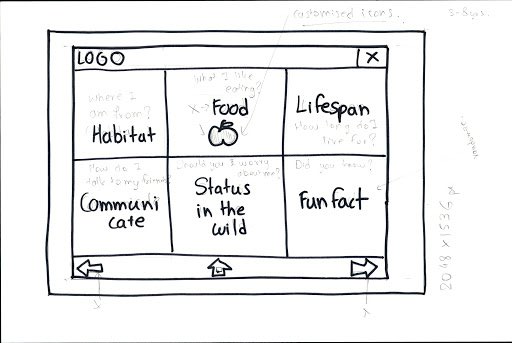 customised icons.
3-8yrs.
LOGO
X
where I
am from?
Habitat
What I like
eating?
X
Food
Lifespan
How long do I
live for?
How do I
talk to my friends?
Communi
cate
should you & worry
about me?
Status
in the
wild
Did you know?
Fun fact
2048 x 1536 px